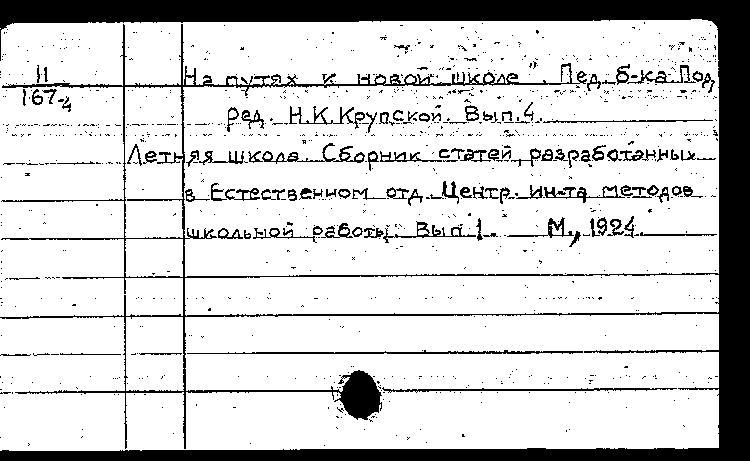 11
167-4
На путях к новой школе". Пед. б-ка Под
ред. Н.К.Крупской. Вып.4.
Летняя школа. Сборник статей, разработанных
в Естественном отд. Центр. ин-та методов
школьной работы. Вып 1. М., 1924.